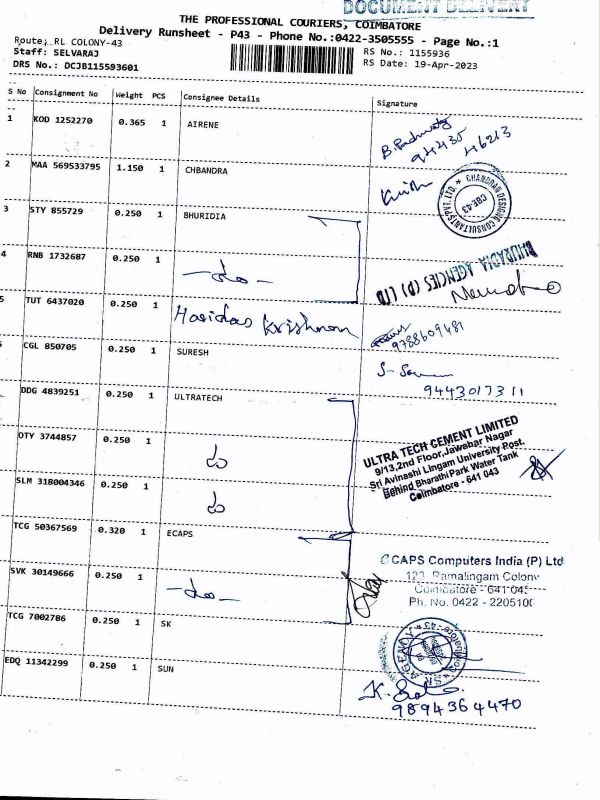 DOCUMENT DELIVERY
THE PROFESSIONAL COURIERS, COIMBATORE
Delivery Runsheet - P43 - Phone No.:0422-3505555 - Page No.:1
Route: RL COLONY-43
RS No.: 1155936
Staff: SELVARAJ
RS Date: 19-Apr-2023
DRS No.: DCJB115593601
S No Consignment No Weight PCS Consignee Details Signature
1 KOD 1252270 0.365 1 AIRENE
94435 46213
2 MAA 569533795 1.150 1 CHBANDRA
CHANDRAN DESIGNS CONSULTANTS PVT. LTD. ★
CBE-43
3 STY 855729 0.250 1 BHURIDIA
4 RNB 1732687 0.250 1 -do-
BHURADIA AGENCIES (P) LTD
5 TUT 6437020 0.250 1 Haridas Krishnan
9788609481
CGL 850705 0.250 1 SURESH
9443017311
DDG 4839251 0.250 1 ULTRATECH
OTY 3744857 0.250 1 do
ULTRA TECH CEMENT LIMITED
9/13,2nd Floor,Jawahar Nagar
Sri Avinashi Lingam University Post,
Behind Bharathi Park Water Tank
Coimbatore - 641 043
SLM 318004346 0.250 1 do
TCG 50367569 0.320 1 ECAPS
ECAPS Computers India (P) Ltd
123, Ramalingam Colony
Coimbatore - 641 043
Ph. No. 0422 - 2205100
SVK 30149666 0.250 1 -do-
TCG 7002786 0.250 1 SK
S.K. AGENCY
EDQ 11342299 0.250 1 SUN
9894364470